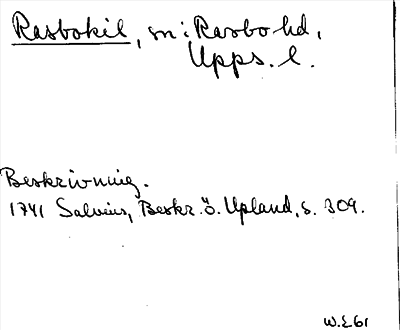 Rasbokil, sn i Rasbo hd,
Upps. l.
Beskrivning.
1741 Salvius, Beskr. ö. Upland, s. 309.
W. E 61